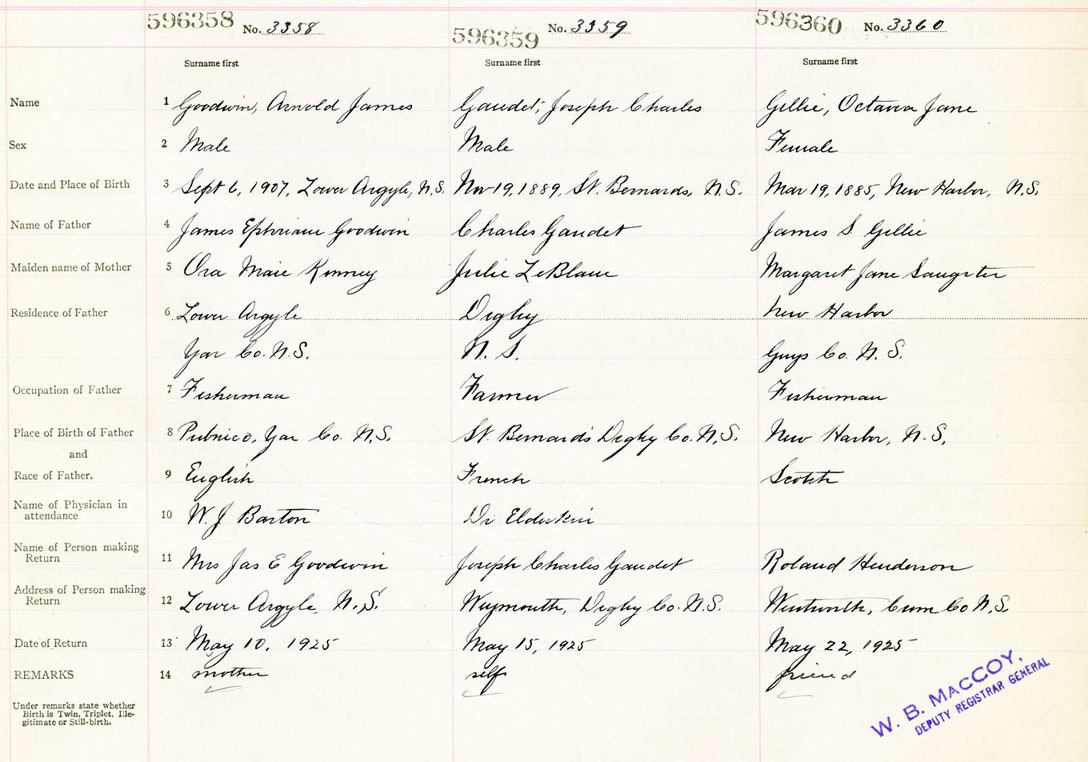 596358 No. 3358
596359 No. 3359
596360 No. 3360
Surname first Surname first Surname first
Name 1 Goodwin, Arnold James Gaudet, Joseph Charles Gillie, Octavia Jane
Sex 2 Male Male Female
Date and Place of Birth 3 Sept 6, 1907, Lower Argyle, N.S. Nov 19, 1889, St. Bernards, N.S. Mar 19, 1885, New Harbor, N.S.
Name of Father 4 James Ephriam Goodwin Charles Gaudet James S Gillie
Maiden name of Mother 5 Ora Maie Kinney Julie LeBlanc Margaret Jane Saugster
Residence of Father 6 Lower Argyle Digby New Harbor
Yar Co. N.S. N.S. Guys Co. N.S.
Occupation of Father 7 Fisherman Farmer Fisherman
Place of Birth of Father 8 Pubnico, Yar Co. N.S. St. Bernard's Digby Co. N.S. New Harbor, N.S.
and
Race of Father. 9 English French Scotch
Name of Physician in
attendance 10 W. J Barton Dr Elderkin
Name of Person making
Return 11 Mrs Jas E Goodwin Joseph Charles Gaudet Roland Henderson
Address of Person making
Return 12 Lower Argyle, N.S. Weymouth, Digby Co. N.S. Wentworth, Cum Co N.S.
Date of Return 13 May 10, 1925 May 15, 1925 May 22, 1925
REMARKS 14 mother self friend
Under remarks state whether
Birth is Twin, Triplet, Ille-
gitimate or Still-birth.
W. B. MACCOY,
DEPUTY REGISTRAR GENERAL